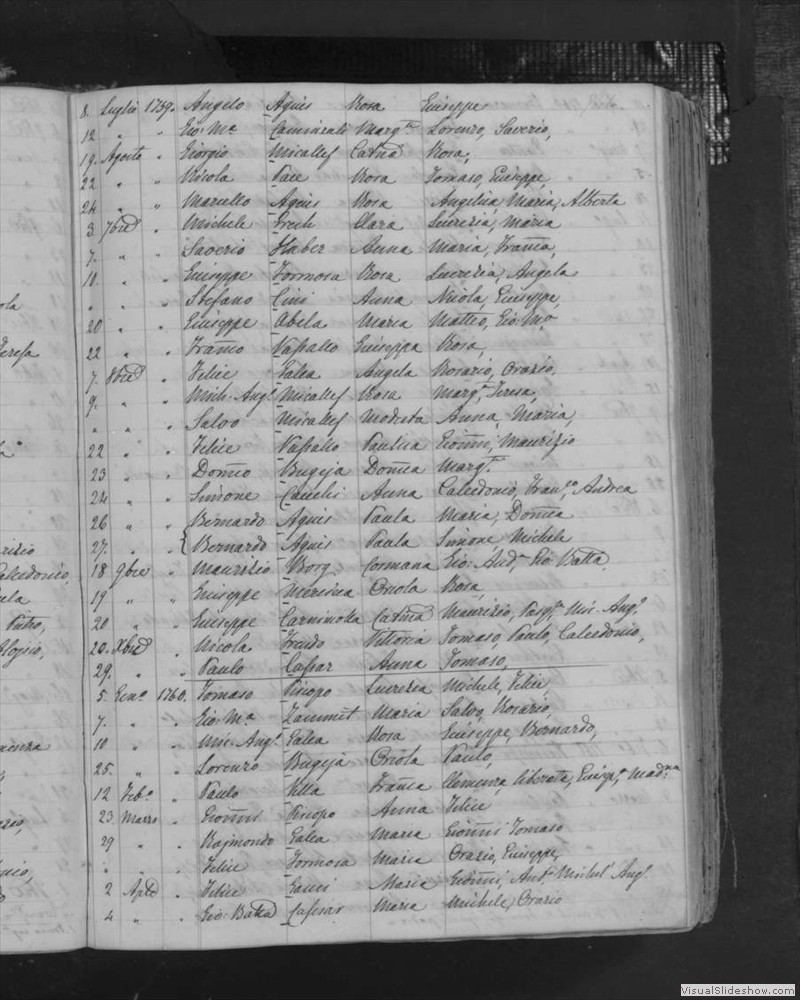 8. Luglio 1759. Angelo Agius Rosa Giuseppe
12 " " Gio: Ma Caminrati Margta Lorenzo, Saverio,
19. Agosto " Giorgio Micallef Catna Rosa,
22 " " Nicola Pace Rosa Tomaso, Giuseppe,
24 " " Marcello Agius Rosa Angelica, Maria, Alberta
3. 7bre " Michele Grech Clara Lucrezia, Maria
7. " " Saverio Haber Anna Maria, Franca,
10 " " Giuseppe Formosa Rosa Lucrezia, Angela
" " " Stefano Cini Anna Nicola, Giuseppe,
20 " " Giuseppe Abela Maria Matteo, Gio: Ma
22 " " Franco Vassallo Giuseppa Rosa,
7. 8bre " Felice Galea Angela Rosario, Orazio,
9. " " Mich: Angl. Micallef Rosa Margta Teresa,
" " " Salvo Micallef Modesta Anna, Maria,
22 " " Felice Vassallo Paulica Gionni, Maurizio
23 " " Domco Bugeja Domca Margta
24 " " Simone Cauchi Anna Calcedonio, Franco, Andrea
26 " " Bernardo Agius Paula Maria, Domca
27. " " { Bernardo Agius Paula Simone Michele
18 9bre " Maurizio Borg Cosmana Gio: Anda Gio Batta
19 " " Giuseppe Mersina Orsola Rosa,
20 " " Giuseppe Catna Maurizio, Pasqle, Mic. Angº
20. Xbre " Nicola Vittoria Tomaso, Paulo, Calcedonio,
29. " " Paulo Cassar Anna Tomaso,
5. Genº 1760. Tomaso Pisopo Lucrezia Michele, Felice,
7. " " Gio: Ma Zammit Maria Salvo, Rosario,
10 " " Mic: Angl. Galea Rosa Giuseppe, Bernardo,
25. " " Lorenzo Bugeja Orsola Paulo,
12 Febº " Paulo Vella Franca Clemenza liberata, Giuspe, Madna
23. Marzo " Gionni Pisopo Anna Felice
29 " " Rajmondo Galea Maria Gionni Tomaso
" " " Felice Formosa Maria Orazio, Giuseppe,
2 Aple " Felice Gauci Maria Gionni, Anda Michel' Angl.
4 " " Gio: Batta Cassar Maria Michele, Orazio
VisualSlideshow.com